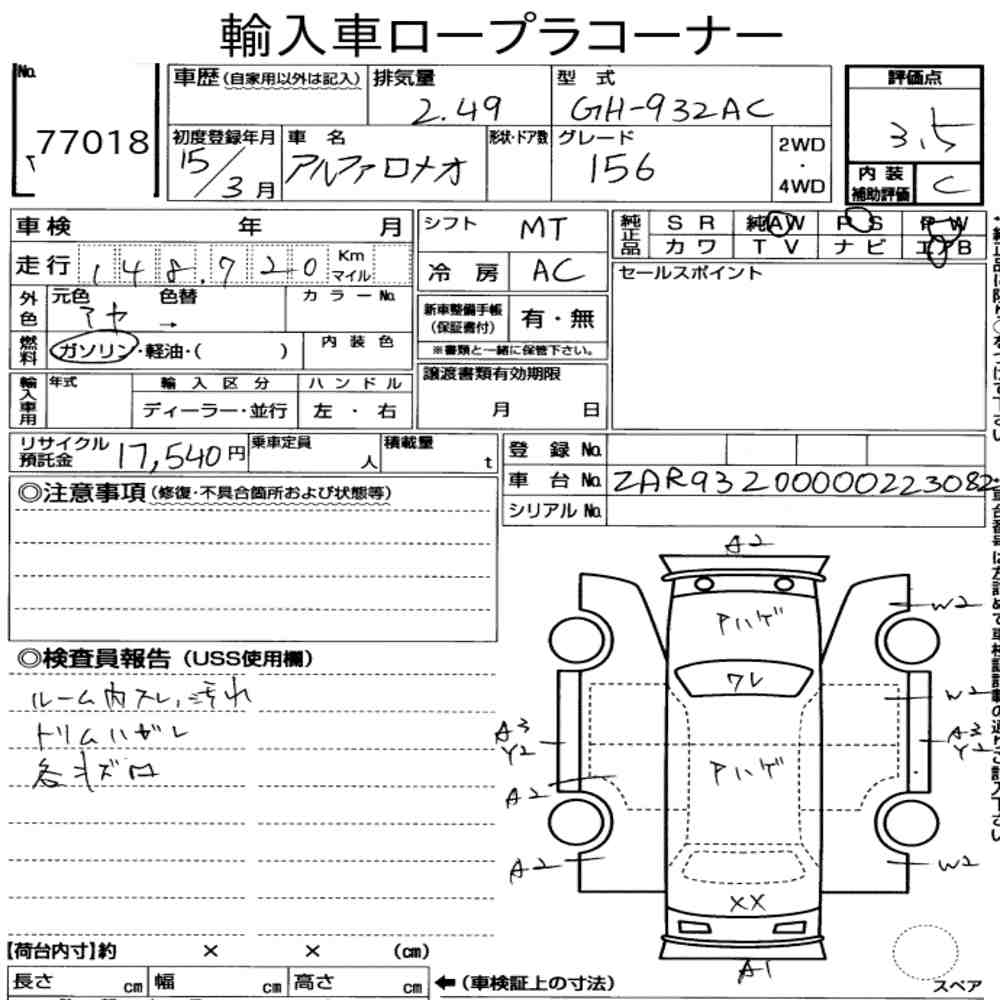 輸入車ロープラコーナー
No. 77018
車歴(自家用以外は記入) 排気量 2.49 型式 GH-932AC
初度登録年月 15/3月 車名 アルファロメオ 形状・ドア数 グレード 156 2WD・4WD
評価点 3.5
内装補助評価 C
車検 年 月
走行 148.720 Km マイル
外色 元色 色替 カラーNo.
アヤ →
燃料 ガソリン・軽油・( ) 内装色
輸入車用 年式 輸入区分 ハンドル
ディーラー・並行 左・右
リサイクル預託金 17,540円 乗車定員 人 積載量 t
シフト MT
冷房 AC
新車整備手帳(保証書付) 有・無
※書類と一緒に保管下さい。
譲渡書類有効期限
月 日
純正品 SR 純AW PS PW
カワ TV ナビ エアB
セールスポイント
登録No.
車台No. ZAR93200000223082
シリアルNo.
◎注意事項(修復・不具合箇所および状態等)
◎検査員報告(USS使用欄)
ルーム内スレ,汚れ
トリムハガレ
各キズ
A2
Pハゲ
ワレ
Pハゲ
XX
A1
W2
W2
A3
Y2
W2
A3
Y2
A2
A2
スペア
【荷台内寸】約 × × (cm)
長さ cm 幅 cm 高さ cm ←(車検証上の寸法)